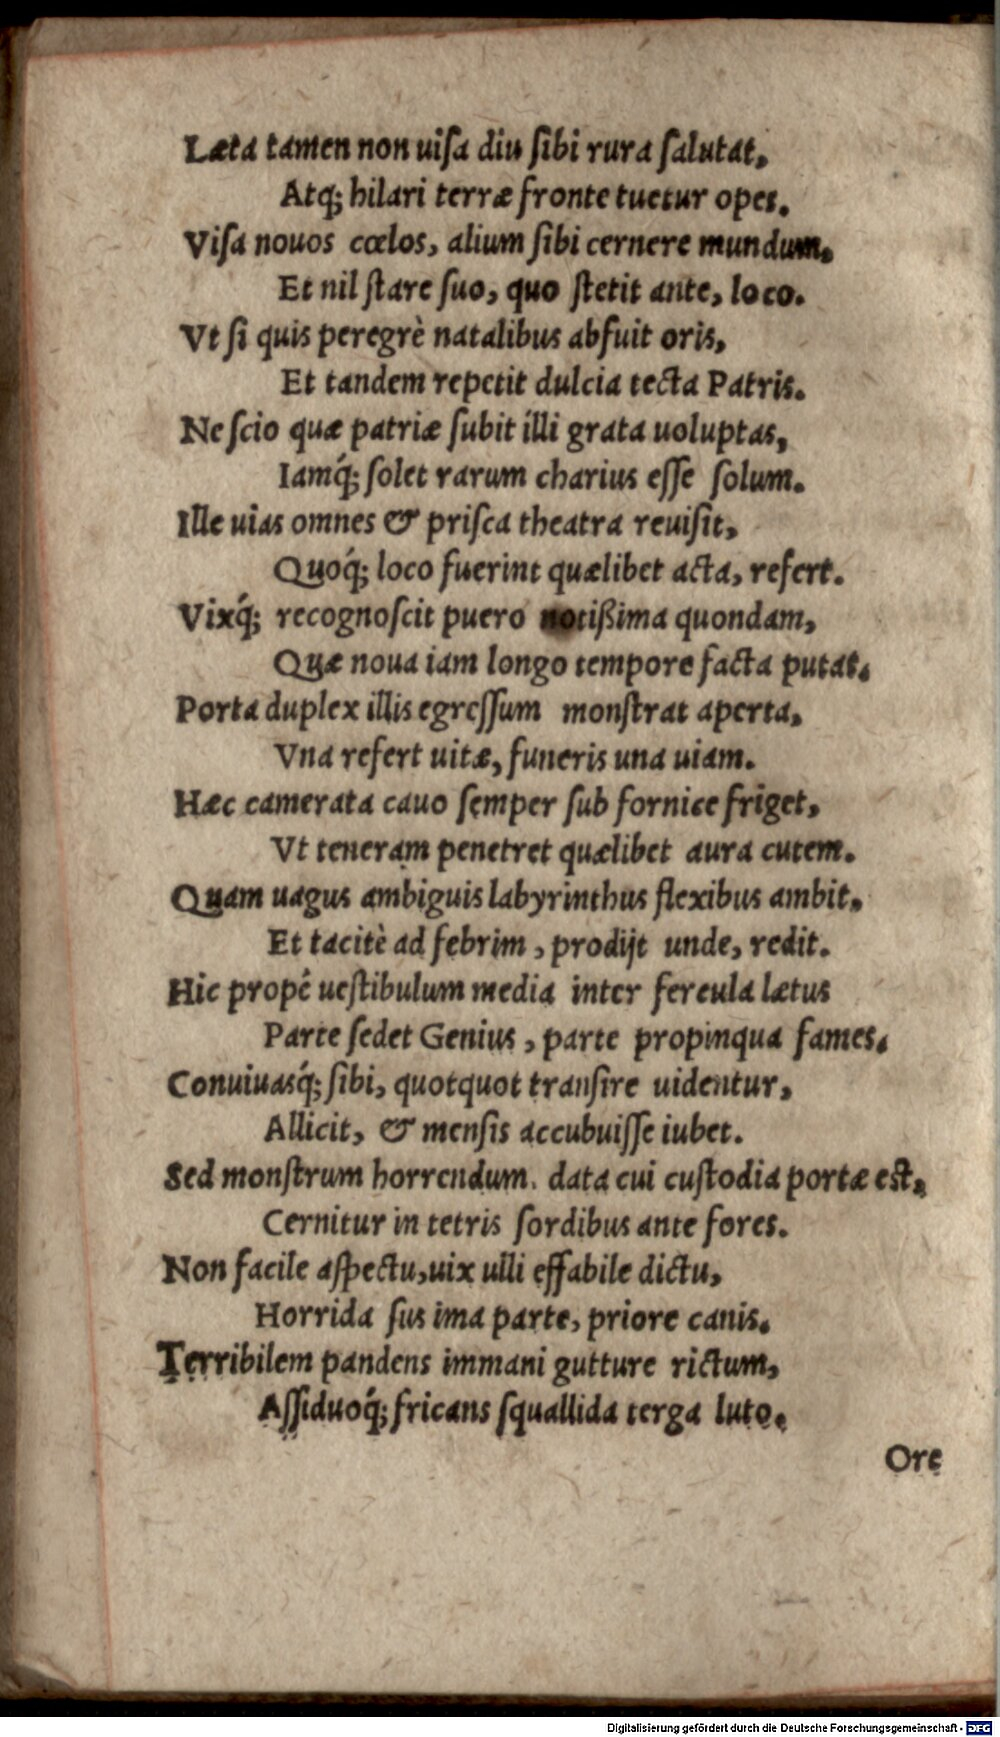 Læta tamen non uiſa diu ſibi rura ſalutat,
Atq; hilari terræ fronte tuetur opes.
Viſa nouos cœlos, alium ſibi cernere mundum,
Et nil ſtare ſuo, quo ſtetit ante, loco.
Vt ſi quis peregrè natalibus abfuit oris,
Et tandem repetit dulcia tecta Patris.
Neſcio quæ patriæ ſubit illi grata uoluptas,
Iamq́; ſolet rarum charius eſſe ſolum.
Ille uias omnes & priſca theatra reuiſit,
Quoq́; loco fuerint quælibet acta, refert.
Vixq́; recognoſcit puero notißima quondam,
Quæ noua iam longo tempore facta putat.
Porta duplex illis egreſſum monſtrat aperta,
Vna refert uitæ, funeris una uiam.
Hæc camerata cauo ſemper ſub fornice friget,
Vt teneram penetret quælibet aura cutem.
Quam uagus ambiguis labyrinthus flexibus ambit,
Et tacitè ad febrim, prodijt unde, redit.
Hic propè ueſtibulum media inter fercula lætus
Parte ſedet Genius, parte propinqua fames.
Conuiuasq́; ſibi, quotquot tranſire uidentur,
Allicit, & menſis accubuiſſe iubet.
Sed monſtrum horrendum. data cui cuſtodia portæ eſt,
Cernitur in tetris ſordibus ante fores.
Non facile aſpectu, uix ulli effabile dictu,
Horrida ſus ima parte, priore canis.
Terribilem pandens immani gutture rictum,
Aſſiduoq́; fricans ſquallida terga luto.
Ore
Digitalisierung gefördert durch die Deutsche Forschungsgemeinschaft - DFG